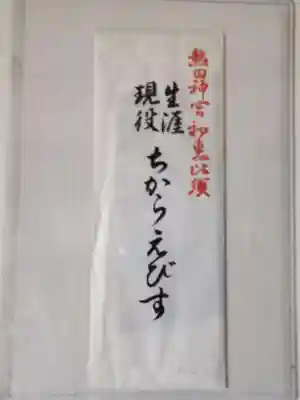 熱田神宮初恵比須
生涯
現役
ちからえびす